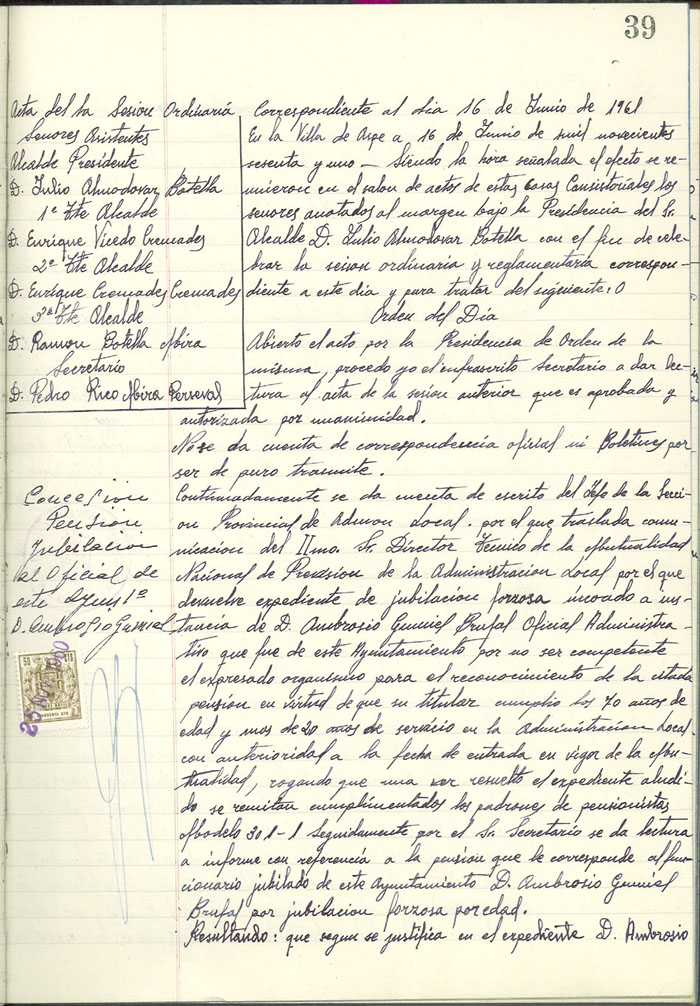 39
Acta del la Sesion Ordinaria Correspondiente al dia 16 de Junio de 1961
Señores Asistentes
Alcalde Presidente
D. Julio Almodovar Botella
1º Tte Alcalde
D. Enrique Vicedo Cremades
2º Tte Alcalde
D. Enrique Cremades Cremades
3º Tte Alcalde
D. Ramon Botella Mira
Secretario
D. Pedro Rico Mira Perseval
En la Villa de Aspe a 16 de Junio de mil novecientos
sesenta y uno — Siendo la hora señalada el efecto se re-
unieron en el salon de actos de estas Casas Consistoriales los
señores anotados al margen bajo la Presidencia del Sr.
Alcalde D. Julio Almodovar Botella con el fin de cele-
brar la sesion ordinaria y reglamentaria correspon-
diente a este dia y para tratar del siguiente:
Orden del Dia
Abierto el acto por la Presidencia de Orden de la
misma, procedo yo el infrascrito Secretario a dar lec-
tura al acta de la sesion anterior que es aprobada y
autorizada por unanimidad.
No se da cuenta de correspondencia oficial ni Boletines por
ser de puro tramite.
Concesion
Pension
Jubilacion
al Oficial de
este Ayunt º
D. Ambrosio Gumiel
Continuadamente se da cuenta de escrito del Jefe de la Secci-
on Provincial de Admon Local. por el que traslada comu-
nicacion del Ilmo. Sr. Director Tecnico de la Mutualidad
Nacional de Prevision de la Administracion Local por el que
devuelve expediente de jubilacion forzosa incoado a ins-
tancia de D. Ambrosio Gumiel Brufal Oficial Administra-
tivo que fue de este Ayuntamiento por no ser competente
el expresado organismo para el reconocimiento de la citada
pension en virtud de que su titular cumplio los 70 años de
edad y mas de 20 años de servicio en la Administracion Local
con anterioridad a la fecha de entrada en vigor de la Mu-
tualidad, rogando que una vez resuelto el expediente aludi-
do se remitan cumplimentados los padrones de pensionistas
Modelo 301-1 Seguidamente por el Sr. Secretario se da lectura
a informe con referencia a la pension que le corresponde al fun-
cionario jubilado de este Ayuntamiento D. Ambrosio Gumiel
Brufal por jubilacion forzosa por edad.
Resultando: que segun se justifica en el expediente D. Ambrosio
50 CTS